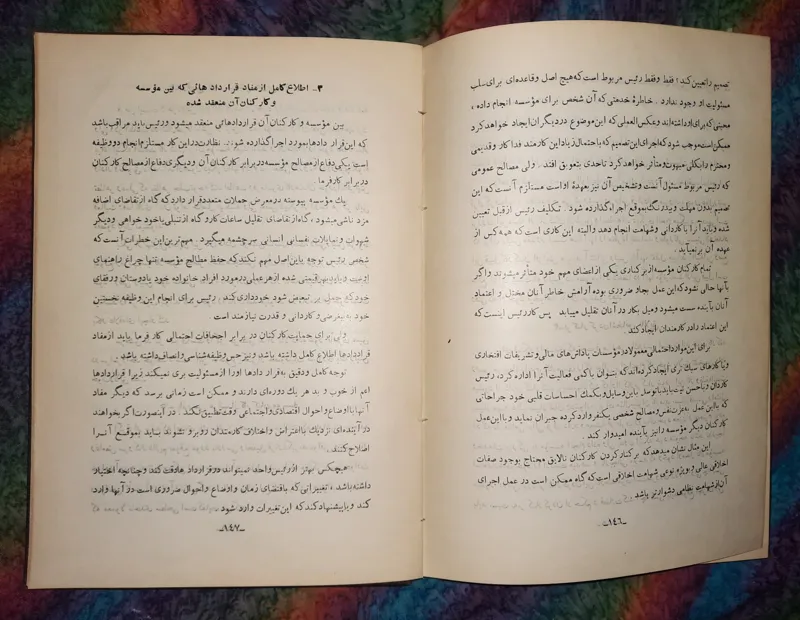 تصمیم را تعیین کند؛ فقط و فقط رئیس مربوط است که هیچ اصل و قاعده‌ای برای سلب
مسئولیت او وجود ندارد. خاطرهٔ خدمتی که آن شخص برای مؤسسه انجام داده،
محبتی که برای او داشته‌اند و عکس‌العملی که این موضوع در دیگران ایجاد خواهد کرد
ممکن است موجب شود که اجرای این تصمیم که با احتمال زیاد این کارمند فداکار و قدیمی
و محترم را بکلی مبهوت و متأثر خواهد کرد تا حدی بتعویق افتد. ولی مصالح عمومی
که رئیس مربوط مسئول آنست و تشخیص آن نیز بعهدهٔ اوست مستلزم آنست که این
تصمیم بدون مهلت و بیدرنگ بموقع اجرا گذارده شود. تکلیف رئیس از قبل تعیین
شده و باید آنرا با کاردانی و شهامت انجام دهد و البته این کاری است که همه کس از
عهده آن برنمیآید.
تمام کارکنان مؤسسه از برکناری یکی از اعضای مهم خود متأثر میشوند و اگر
بآنها حالی نشود که این عمل بجا و ضروری بوده آرامش خاطر آنان مختل و اعتماد
آنان بآینده سست میشود و میل بکار در آنان تقلیل مییابد. پس کار رئیس اینست که
این اعتماد را در کارمندان ایجاد کند.
برای این موارد احتمالی معمولا در مؤسسات پاداش‌های مالی و تشریفات افتخاری
و یا کارهای سبک‌تری ایجاد کرده‌اند که بتوان با کمی فعالیت آنرا اداره کرد، رئیس
کاردان و با حسن نیت باید با توسل باین وسایل و بکمک احساسات قلبی خود جراحاتی
که با این عمل بعزت نفس و مصالح شخصی یکنفر وارد کرده جبران نماید و با این عمل
کارکنان دیگر مؤسسه را نیز بآینده امیدوار کند.
این مثال نشان میدهد که برکنار کردن کارکنان نالایق محتاج بوجود صفات
اخلاقی عالی و بویژه نوعی شهامت اخلاقی است که گاه ممکن است در عمل اجرای
آن از شهامت نظامی دشوارتر باشد.
-۱۴۶-
۳- اطلاع کامل از مفاد قرارداد هائی که بین مؤسسه
و کارکنان آن منعقد شده
بین مؤسسه و کارکنان آن قراردادهائی منعقد میشود و رئیس باید مراقب باشد
که این قرار دادها بمورد اجرا گذارده شود. نظارت در این کار مستلزم انجام دو وظیفه
است یکی دفاع از مصالح مؤسسه در برابر کارکنان آن و دیگری دفاع از مصالح کارکنان
در برابر کارفرما.
یک مؤسسه پیوسته در معرض حملات متعدد قرار دارد که گاه از تقاضای اضافه
مزد ناشی میشود، گاه از تقاضای تقلیل ساعات کار و گاه از تنبلی یا خود خواهی و دیگر
شهوات و تمایلات نفسانی انسانی سرچشمه میگیرد. مهم‌ترین این خطرات آنست که
شخص رئیس توجه باین اصل مهم نکند که حفظ مصالح مؤسسه تنها چراغ راهنمای
اوست و باید بهر قیمتی شده از هر عملی در مورد افراد خانواده خود یا دوستان و رفقای
خود که حمل بر تبعیض شود خودداری کند. رئیس برای انجام این وظیفه نخستین
خود به بیغرضی و کاردانی و قدرت نیازمند است.
ولی برای حمایت کارکنان در برابر اجحافات احتمالی کار فرما باید از مفاد
قراردادها اطلاع کامل داشته باشد و نیز حس وظیفه‌شناسی و انصاف داشته باشد.
توجه کامل و دقیق به قرار دادها او را از مسئولیت بری نمیکند زیرا قراردادها
اعم از خوب و بد هر یک دوره‌ای دارند و ممکن است زمانی برسد که دیگر مفاد
آنها با اوضاع و احوال اقتصادی و اجتماعی وقت تطبیق نکند. در اینصورت اگر بخواهند
در آینده‌ای نزدیک با اعتراض و اختلاف کارمندان روبرو نشوند باید بموقع آنرا
اصلاح کنند.
هیچکس بهتر از رئیس واحد نمیتواند در قرارداد ها دقت کند و چنانچه اختیار
داشته باشد، تغییراتی که باقتضای زمان و اوضاع و احوال ضروری است در آنها وارد
کند و یا پیشنهاد کند که این تغییرات وارد شود.
-۱۴۷-